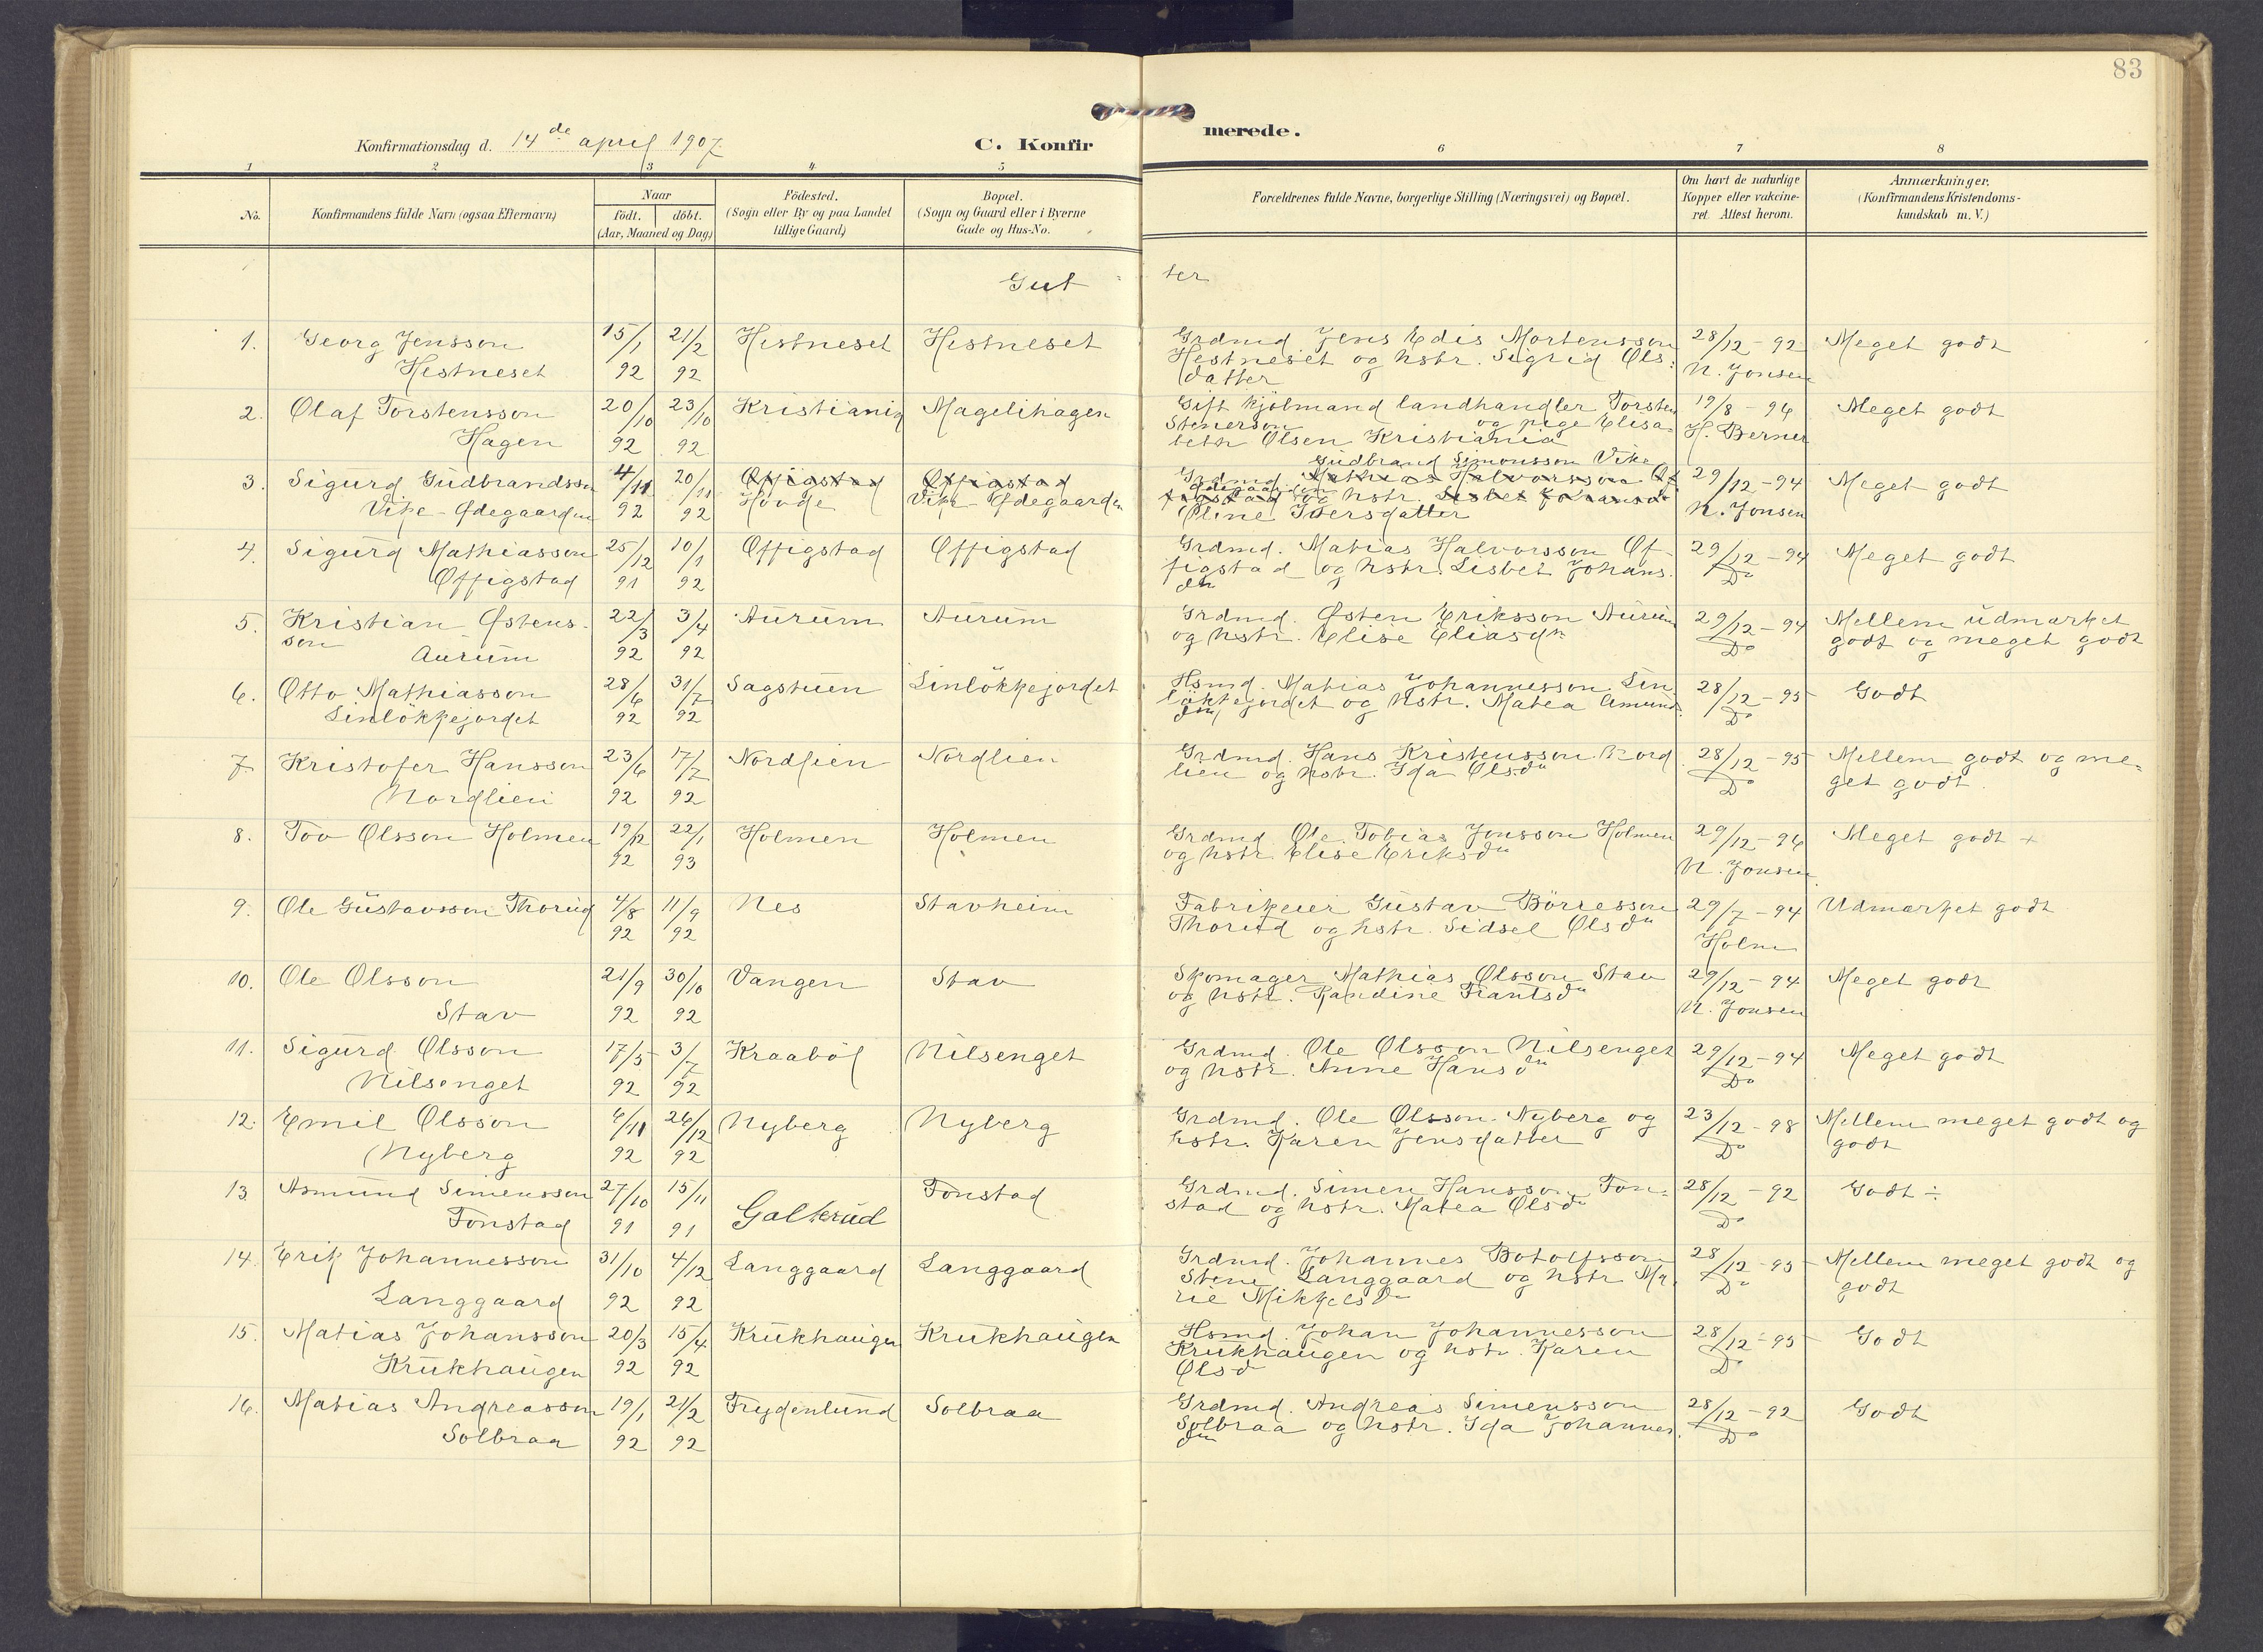 83
Konfirmationsdag d. 14de april 1907.
C. Konfir
merede.
1 2 3 4 5 6 7 8
No.
Konfirmandens fulde Navn (ogsaa Efternavn)
Naar
födt. döbt.
(Aar, Maaned og Dag)
Födested.
(Sogn eller By og paa Landet
tillige Gaard)
Bopæl.
(Sogn og Gaard eller i Byerne
Gade og Hus-No.
Forældrenes fulde Navne, borgerlige Stilling (Næringsvei) og Bopæl.
Om havt de naturlige
Kopper eller vakcine-
ret. Attest herom.
Anmærkninger.
(Konfirmandens Kristendoms-
kundskab m. V.)
Gut
ter
1. Georg Jensson
Hestneset
15/1 92
21/2 92
Hestneset
Hestneset
Grdmd. Jens Edis Mortensson
Hestneset og hstr. Sigrid Ols:
datter
28/12-92
N. Jonsen
Meget godt
2. Olaf Torstensson
Hagen
20/10 92
23/10 92
Kristiania
Magelihagen
Gift kjöbmand landhandler Torsten
Stenerson og pige Elisa-
beth Olsen Kristiania
19/8-96
H. Berner
Meget godt
3. Sigurd Gudbrandsson
Vike-Ødegaarden
4/11 92
20/11 92
Øffigstad
Hovde
Øffigstad
Vike-Ødegaarden
Gudbrand Simonsson Vike
Grdmd. Mathias Halvorsson Øf
Ødegaarden
figstad og hstr. Lisbet Johansd
Oline Iversdatter
29/12-94
N. Jonsen
Meget godt
4. Sigurd Mathiasson
Øffigstad
25/12 91
10/1 92
Øffigstad
Øffigstad
Grdmd. Matias Halvorsson Øf-
figstad og hstr. Lisbet Johans.
dtr
29/12-94
Do
Meget godt
5. Kristian Østens-
son
Aurum
22/3 92
3/4 92
Aurum
Aurum
Grdmd. Østen Eriksson Aurum
og hstr. Elise Eliasdtr
29/12-94
Do
Mellem udmærket
godt og meget godt
6. Otto Mathiasson
Linlökkejordet
28/6 92
31/7 92
Sagstuen
Linlökkejordet
Hsmd. Matias Johannesson Lin
lökkejordet og hstr. Matea Amund.
dtr
28/12-95
Do
Godt
7. Kristofer Hansson
Nordlien
23/6 92
17/7 92
Nordlien
Nordlien
Grdmd. Hans Kristensson Nord
lien og hstr. Ida Olsdtr
28/12-95
Do
Mellem godt og me=
get godt.
8. Tov Olsson Holmen
19/12 92
22/1 93
Holmen
Holmen
Grdmd. Ole Tobias Jonsson Holmen
og hstr. Elise Eriksdtr
29/12-96
N. Jonsen
Meget godt +
9. Ole Gustavsson Thorud
4/8 92
11/9 92
Nes
Stavheim
Fabrikeier Gustav Börresson
Thorud og hstr. Sidsel Olsdtr
29/7-94
Holm
Udmærket godt
10. Ole Olsson
Stav
21/9 92
30/10 92
Vangen
Stav
Skomager Mathias Olsson Stav
og hstr. Randine Frantsdtr
29/12-94
N. Jonsen
Meget godt
11. Sigurd Olsson
Nilsenget
17/5 92
3/7 92
Kraaböl
Nilsenget
Grdmd. Ole Olsson Nilsenget
og hstr. Anne Hansdtr
29/12-94
Do
Meget godt
12. Emil Olsson
Nyberg
6/11 92
26/12 92
Nyberg
Nyberg
Grdmd. Ole Olsson Nyberg og
hstr. Karen Jensdatter
23/12-98
Do
Mellem meget godt og
godt
13. Asmund Simensson
Fonstad
27/10 91
15/11 91
Galterud
Fonstad
Grdmd. Simen Hansson Fon=
stad og hstr. Matea Olsdtr
28/12-92
Do
Godt ÷
14. Erik Johannesson
Langgaard
31/10 92
4/12 92
Langgaard
Langgaard
Grdmd. Johannes Botolfsson
Stene Langgaard og hstr Ma
rie Mikkelsdtr
28/12-95
Do
Mellem meget godt og
godt
15. Matias Johansson
Krukhaugen
20/3 92
15/4 92
Krukhaugen
Krukhaugen
Hsmd. Johan Johannesson
Krukhaugen og hstr. Karen
Olsd
28/12-95
Do
Godt
16. Matias Andreasson
Solbraa
19/1 92
21/2 92
Frydenlund
Solbraa
Grdmd. Andreas Simensson
Solbraa og hstr. Ida Johannes.
dtr
28/12-92
Do
Godt